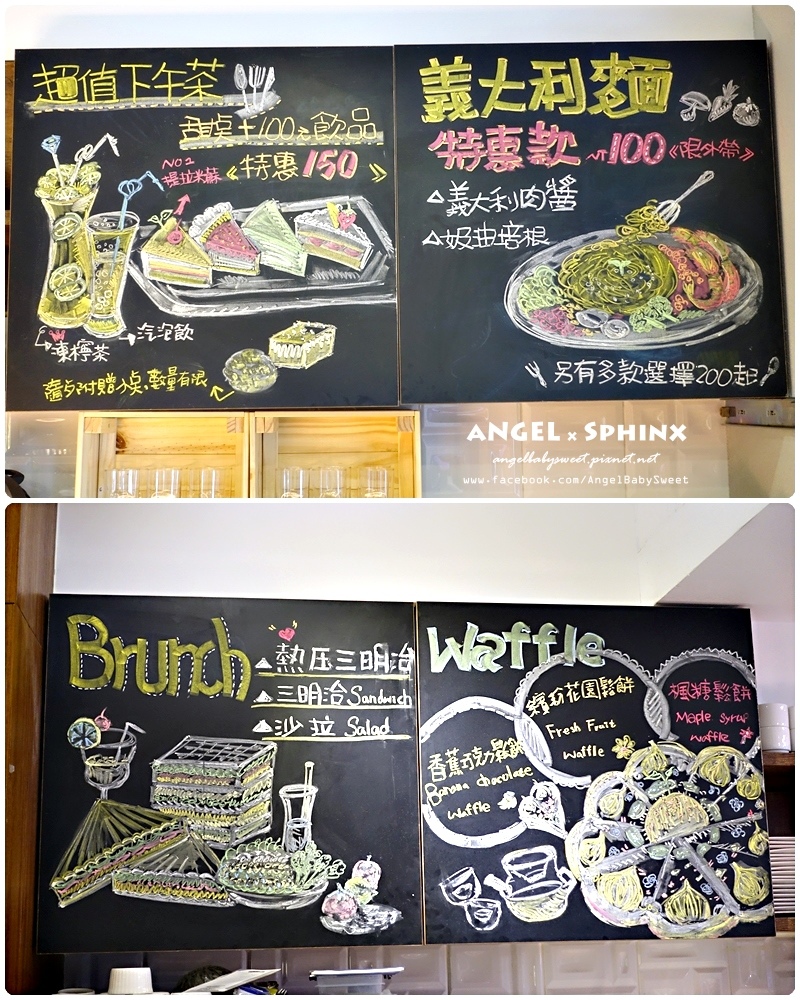 超值下午茶
甜桌+100元飲品
NO1
提拉米蘇
《特惠150》
凍檸茶
汽泡飲
數量有限
義大利麵
特惠款 NT100《限外帶》
△義大利肉醬
△奶油培根
另有多款選擇200起
ANGEL x SPHINX
angelbabysweet.pixnet.net
www.facebook.com/AngelBabySweet
Brunch
熱压三明治
三明治 Sandwich
沙拉 Salad
Waffle
繽紛花園鬆餅
Fresh Fruit
Waffle
楓糖鬆餅
Maple Syrup
Waffle
香蕉巧克力鬆餅
Banana chocolate
Waffle